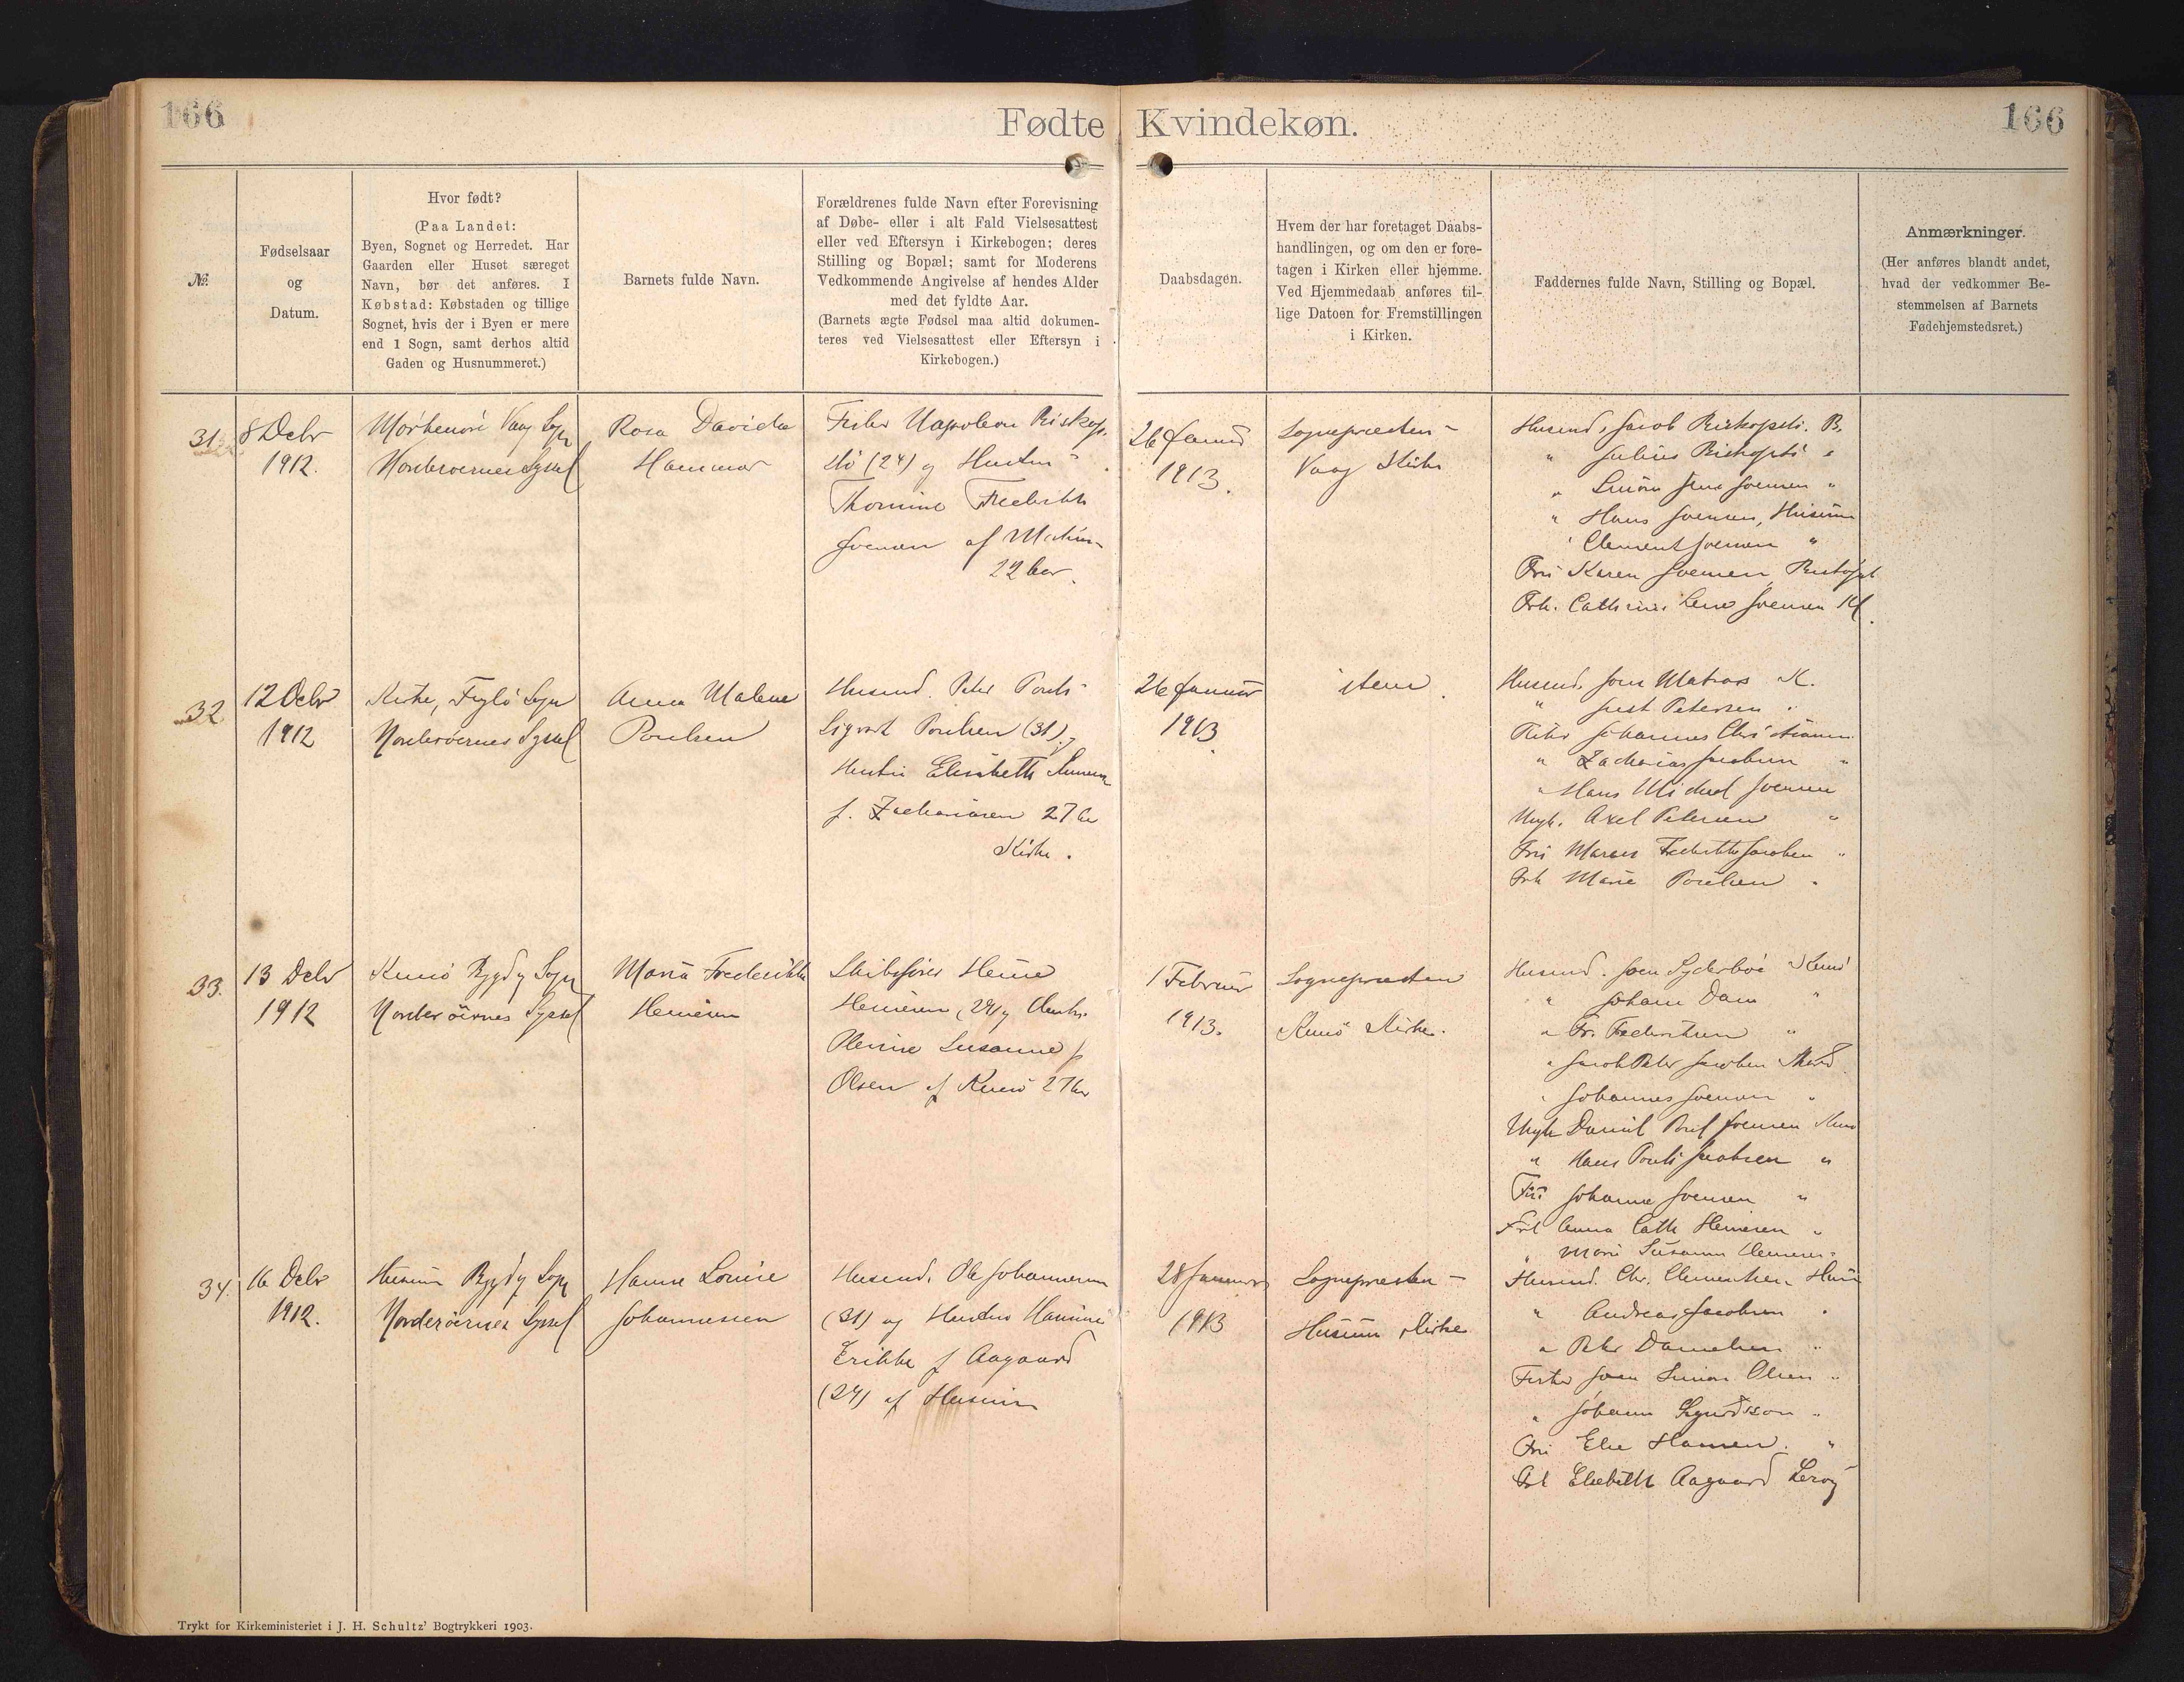 166
Fødte Kvindekøn.
166
№.
Fødselsaar
og
Datum.
Hvor født?
(Paa Landet:
Byen, Sognet og Herredet. Har
Gaarden eller Huset særeget
Navn, bør det anføres. I
Købstad: Købstaden og tillige
Sognet, hvis der i Byen er mere
end 1 Sogn, samt derhos altid
Gaden og Husnummeret.)
Barnets fulde Navn.
Forældrenes fulde Navn efter Forevisning
af Døbe- eller i alt Fald Vielsesattest
eller ved Eftersyn i Kirkebogen; deres
Stilling og Bopæl; samt for Moderens
Vedkommende Angivelse af hendes Alder
med det fyldte Aar.
(Barnets ægte Fødsel maa altid dokumen-
teres ved Vielsesattest eller Eftersyn i
Kirkebogen.)
Daabsdagen.
Hvem der har foretaget Daabs-
handlingen, og om den er fore-
tagen i Kirken eller hjemme.
Ved Hjemmedaab anføres til-
lige Datoen for Fremstillingen
i Kirken.
Faddernes fulde Navn, Stilling og Bopæl.
Anmærkninger.
(Her anføres blandt andet,
hvad der vedkommer Be-
stemmelsen af Barnets
Fødehjemstedsret.)
31
8 Debr
1912.
Vaag Sogn
Norderøernes Syssel
Rosa Davida
Hammer
Fisker Napoleon Biskops
stø (24) og Hustru
Thomine Frederikke
Joensen af
22 Aar.
26 Januar
1913.
Sognepræsten -
Vaag Kirke
Husmd. Jacob Biskopstø. B.
" Julius Biskopstø "
" Simon Jens Joensen "
" Hans Joensen, Husum
" Clement Joensen "
Fru Karen Joensen
Frk. Cathrine Lene Joensen
32
12 Debr
1912
Kirke, Fuglø Sogn
Norderøernes Syssel
Anna Malene
Poulsen
Husmd. Peter Pouls
Sigvart Poulsen (31) og
Hustru Elisabeth
f. Zachariasen 27 Aar
Kirke.
26 Januar
1913
item.
Husmd. Joen Matras K.
" Just Petersen "
Fisker Johannes Christiansen
" Zacharias Jacobsen "
" Hans Michael Joensen
Ungk. Axel Petersen "
Fru Maren Frederikke Jacobsen "
Frk Marie Poulsen "
33.
13 Debr
1912
Kunø Bygd og Sogn
Norderøernes Syssel
Maria Frederikke
Heinesen
Skibsfører Heine
Heinesen (29) og Hustru
Olevine Susanne f
Olsen af Kunø 27 Aar
1 Februar
1913.
Sognepræsten
Kunø Kirke.
Husmd. Joen Syderbø Kunø
" Johan Dam "
" Fr. Frederiksen "
" Jacob Peter Jacobsen
" Johannes Joensen "
Ungk Daniel Poul Joensen Kunø
" Hans Pouli Jacobsen "
Fru Johanne Joensen "
Frk Anna Cath Heinesen "
" Marie Susanne Heinesen "
34.
16 Debr
1912.
Husum Bygd og Sogn
Norderøernes Syssel
Hanne Louise
Johannessen
Husmd. Ole Johannesen
(31) og Hustru Hansine
Erikke f Aagaard
(24) af Husum
28 Januar
1913
Sognepræsten -
Husum Kirke
Husmd. Chr. Clementsen Husum
" Andreas Jacobsen "
" Peter Danielsen "
Fisker Joen Simon Olsen "
" Johann Sigurdsson "
Fru Else Hansen. "
Frk Elsebeth Aagaard
Trykt for Kirkeministeriet i J. H. Schultz' Bogtrykkeri 1903.